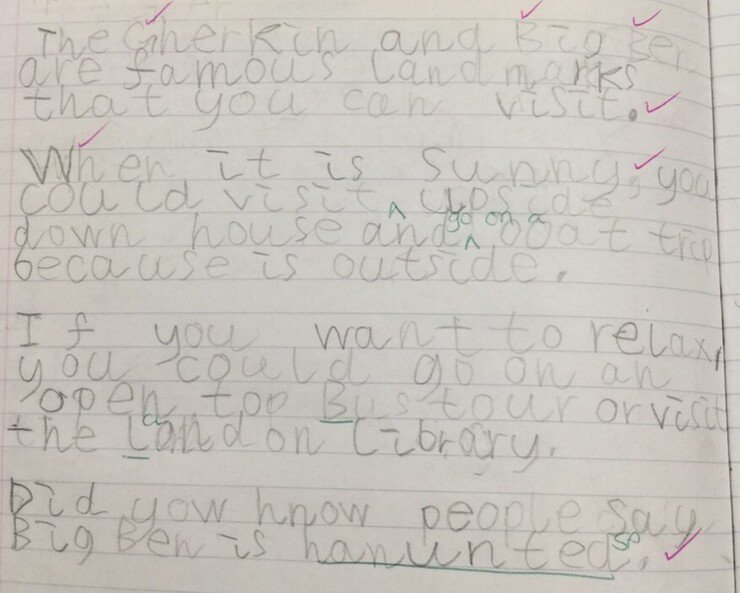 The Gherkin and Big Ben
are famous landmarks
that you can visit.
When it is sunny, you
could visit upside
go on a
down house and boat trip
because is outside.
If you want to relax,
you could go on an
open top Bus tour or visit
the Landon Library.
Did yow know people say
Big Ben is hanunted.
sp